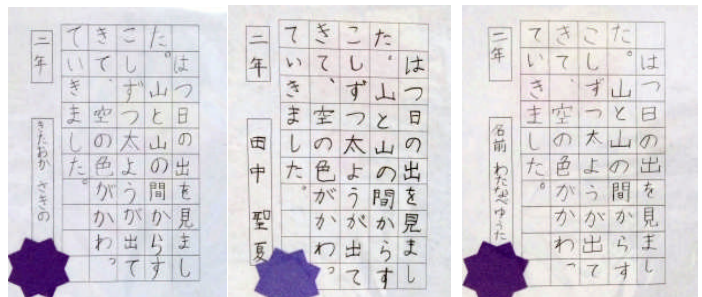 はつ日の出を見まし
た。山と山の間からす
こしずつ太ようが出て
きて、空の色がかわっ
ていきました。
二年
きたおか さきの
はつ日の出を見まし
た。山と山の間からす
こしずつ太ようが出て
きて、空の色がかわっ
ていきました。
二年
田中 聖夏
はつ日の出を見まし
た。山と山の間からす
こしずつ太ようが出て
きて、空の色がかわっ
ていきました。
二年
名前 わたなべゆうた